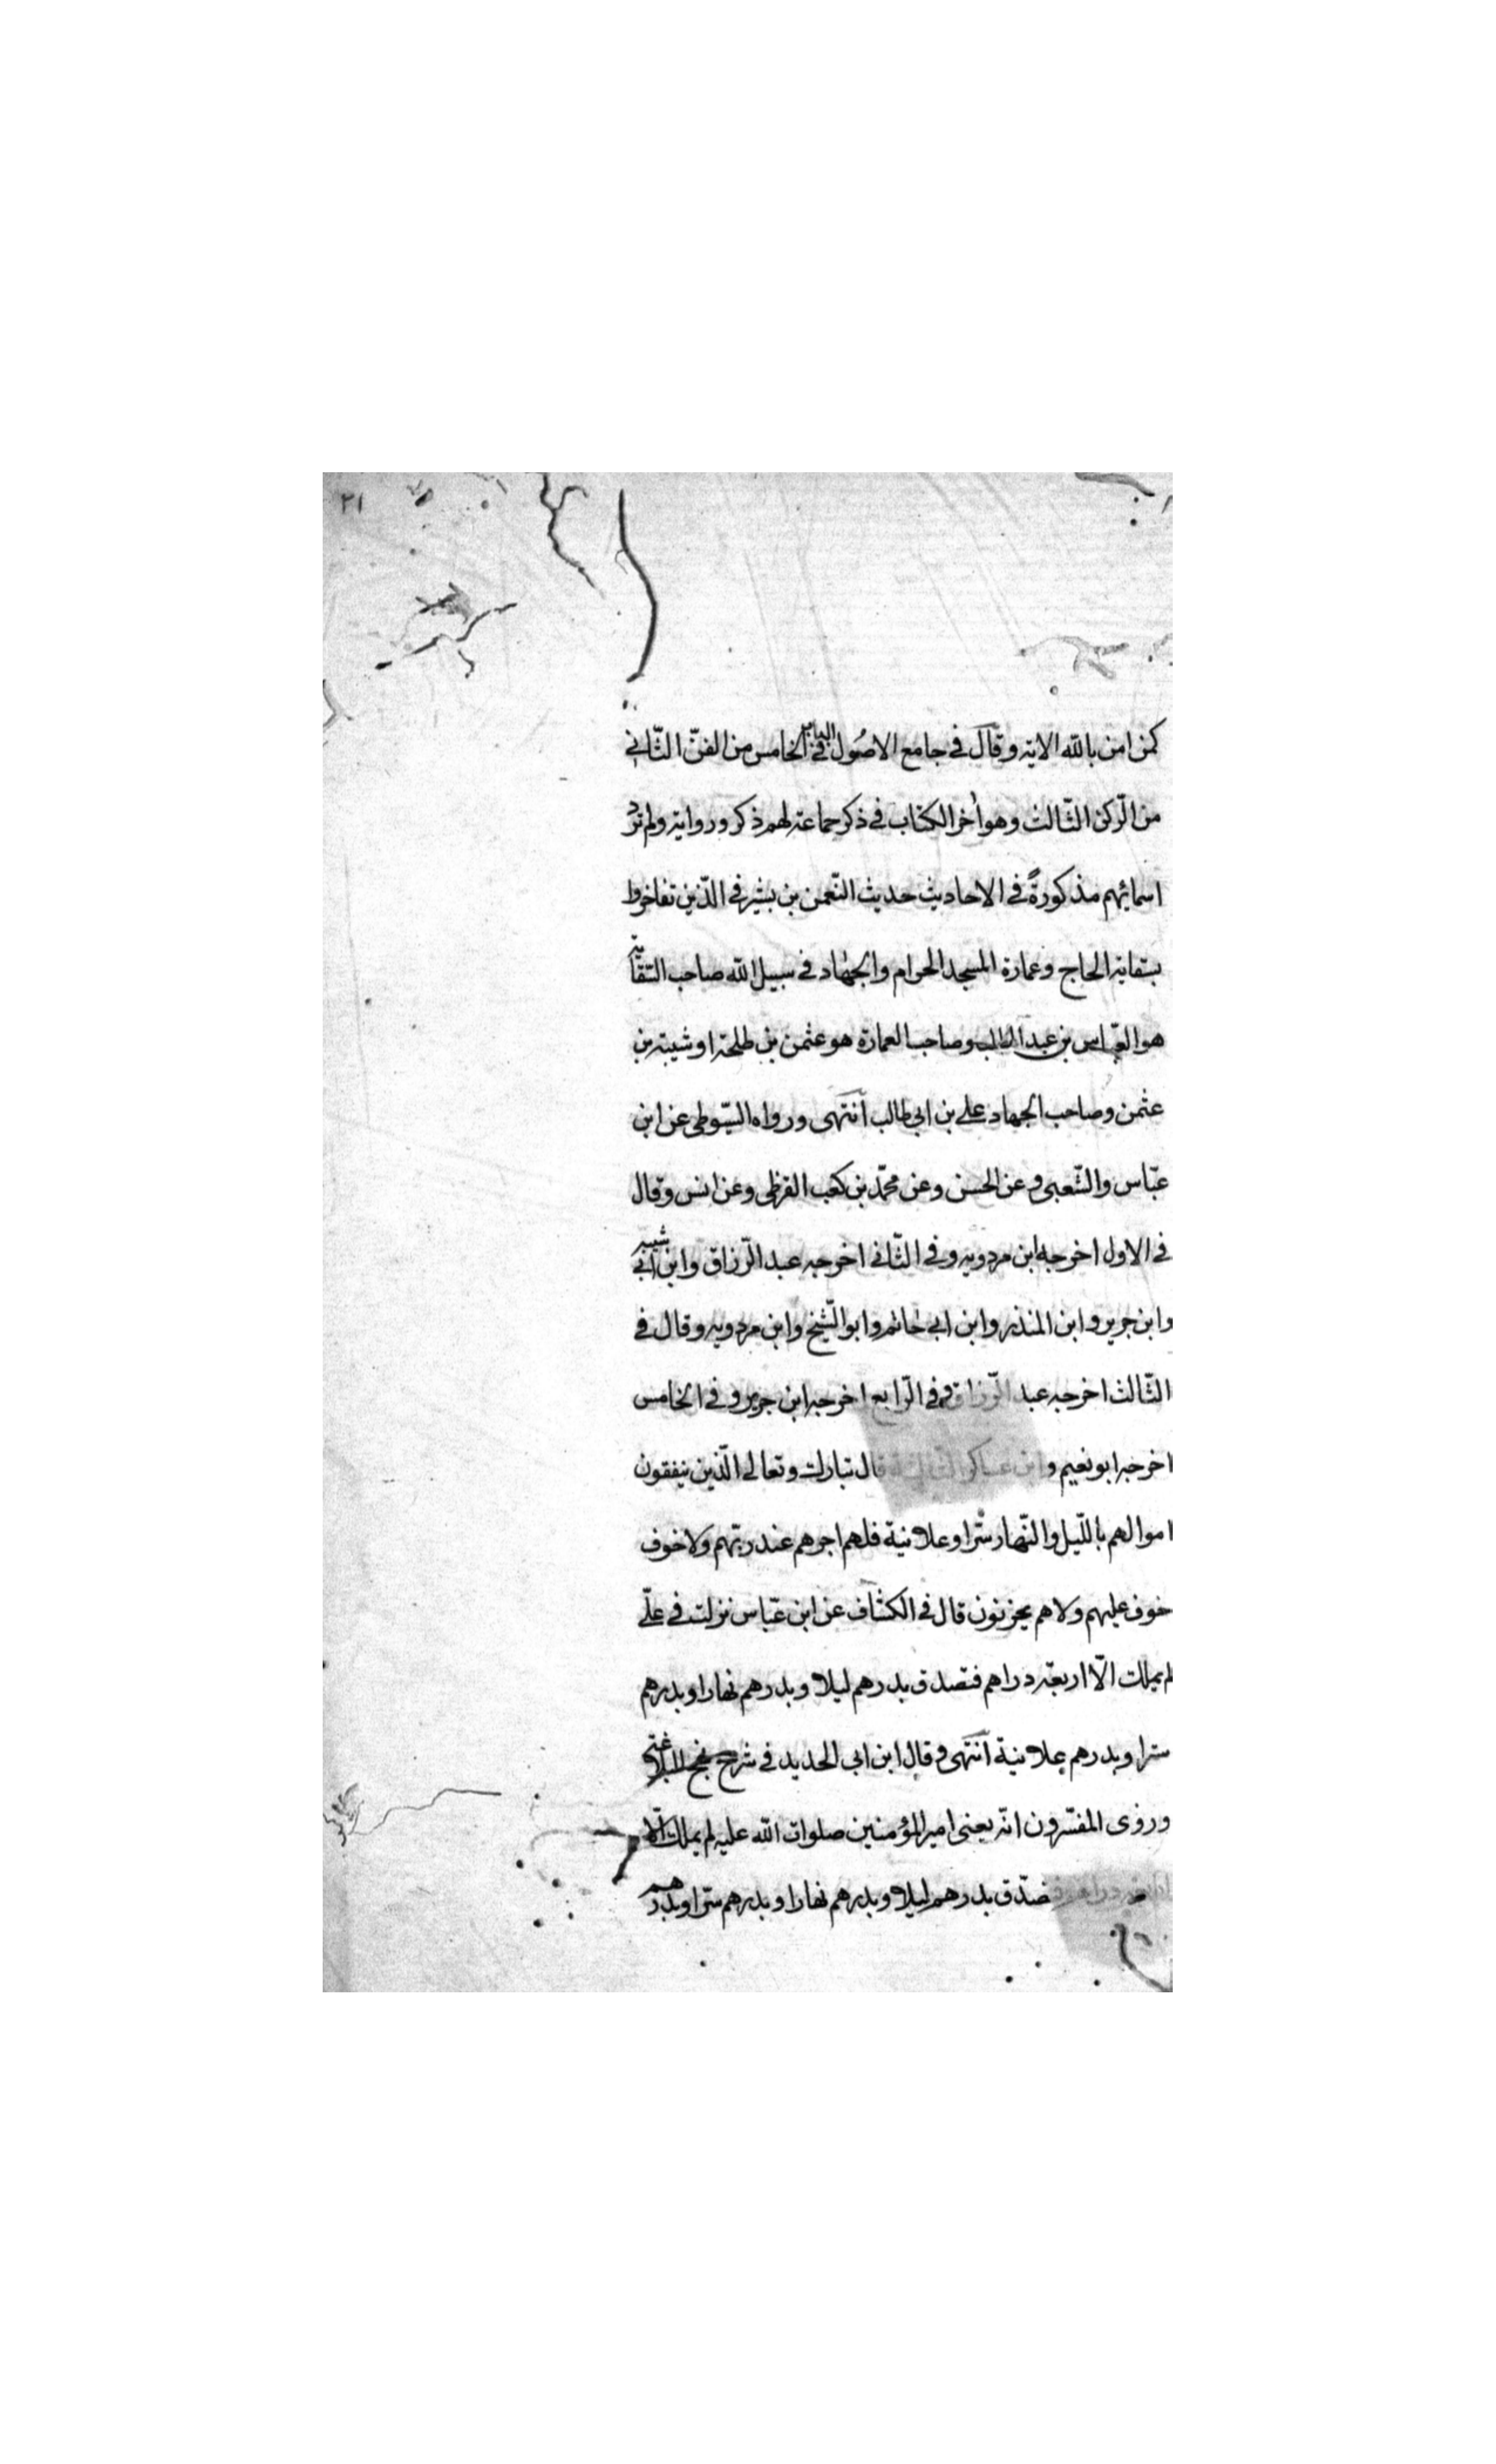 ٢١
كمن امن بالله الاية وقال في جامع الاصول في الباب الخامس من الفنّ الثّاني
من الرّكن الثّالث وهو اٰخر الكتاب في ذكر جماعة لهم ذكر ورواية ولم ترد
اسمائهم مذكورةً في الاحاديث حديث النّعمن بن بشير في الّذين تفاخروا
بسقاية الحاج وعمارة المسجد الحرام والجهاد في سبيل الله صاحب السّقاية
هو العبّاس بن عبد المطلب وصاحب العمارة هو عثمن بن طلحة او شيبة بن
عثمن وصاحب الجهاد علي بن ابي طالب انتهى ورواه السّيوطي عن ابن
عبّاس والشّعبي وعن الحسن وعن محمّد بن كعب القرظي وعن انس وقال
في الاول اخرجه ابن مردويه وفي الثّاني اخرجه عبد الرّزاق وابن ابي شيبه
وابن جرير وابن المنذر وابن ابي حاتم وابو الشّيخ وابن مردويه وقال في
الثّالث اخرجه عبد الرّزاق وفي الرّابع اخرجه ابن جرير وفي الخامس
اخرجه ابو نعيم وابن عساكر قال تبارك وتعالى الّذين ينفقون
اموالهم باللّيل والنّهار سّرا وعلانية فلهم اجرهم عند ربّهم ولا خوف
خوف عليهم ولا هم يحزنون قال في الكشّاف عن ابن عبّاس نزلت في عليّ
لم يملك الّا اربعة دراهم فتصدق بدرهم ليلا وبدرهم نهارا وبدرهم
سرّا وبدرهم علانية انتهى وقال ابن ابي الحديد في شرح نهج البلاغة
وروى المفسّرون انّه يعني امير المؤمنين صلوات الله عليه لم يملك الّا
اربعة دراهم فتصدّق بدرهم ليلا وبدرهم نهارا وبدرهم سّرا وبدرهم